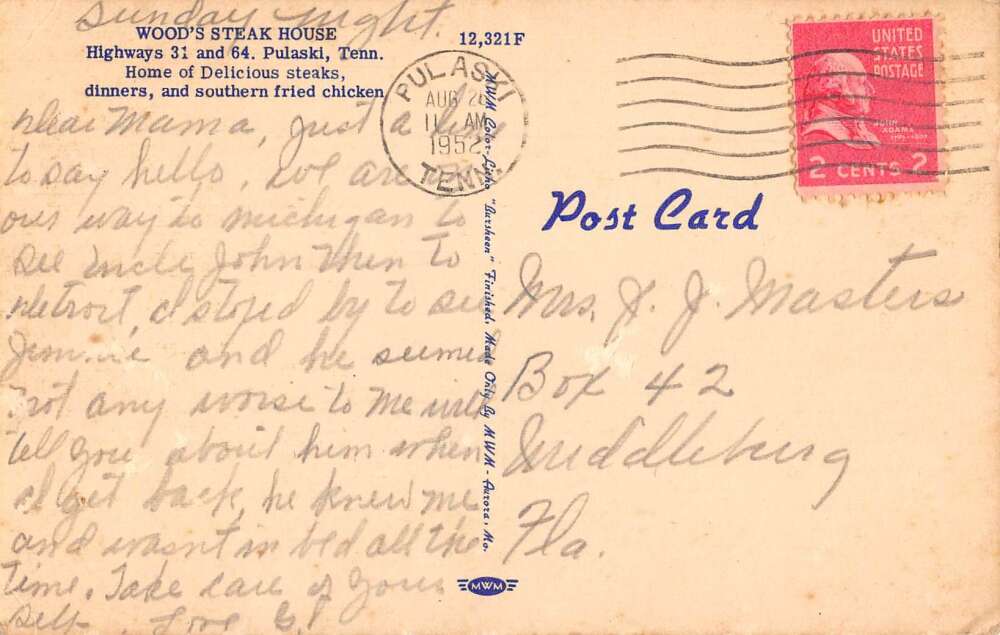 Sunday night.
WOOD'S STEAK HOUSE
Highways 31 and 64. Pulaski, Tenn.
Home of Delicious steaks,
dinners, and southern fried chicken
12,321F
PULASKI
AUG 2
11 AM
1952
TENN.
UNITED
STATES
POSTAGE
JOHN
ADAMS
2 CENTS 2
Dear Mama, Just a line
to say hello, we are on
our way to Michigan to
see Uncle John then to
Detroit, I stoped by to see
Jimmie and he seemed
not any worse to me will
tell you about him when
I get back, he knew me
and wasnt in bed all the
time. Take care of your
self. Love
MWM Color-Litho "Bursheen" Finished, Made Only By MWM - Aurora, Mo.
Post Card
Mrs. J. J. Masters
Box 42
Middleburg
Fla.
MWM